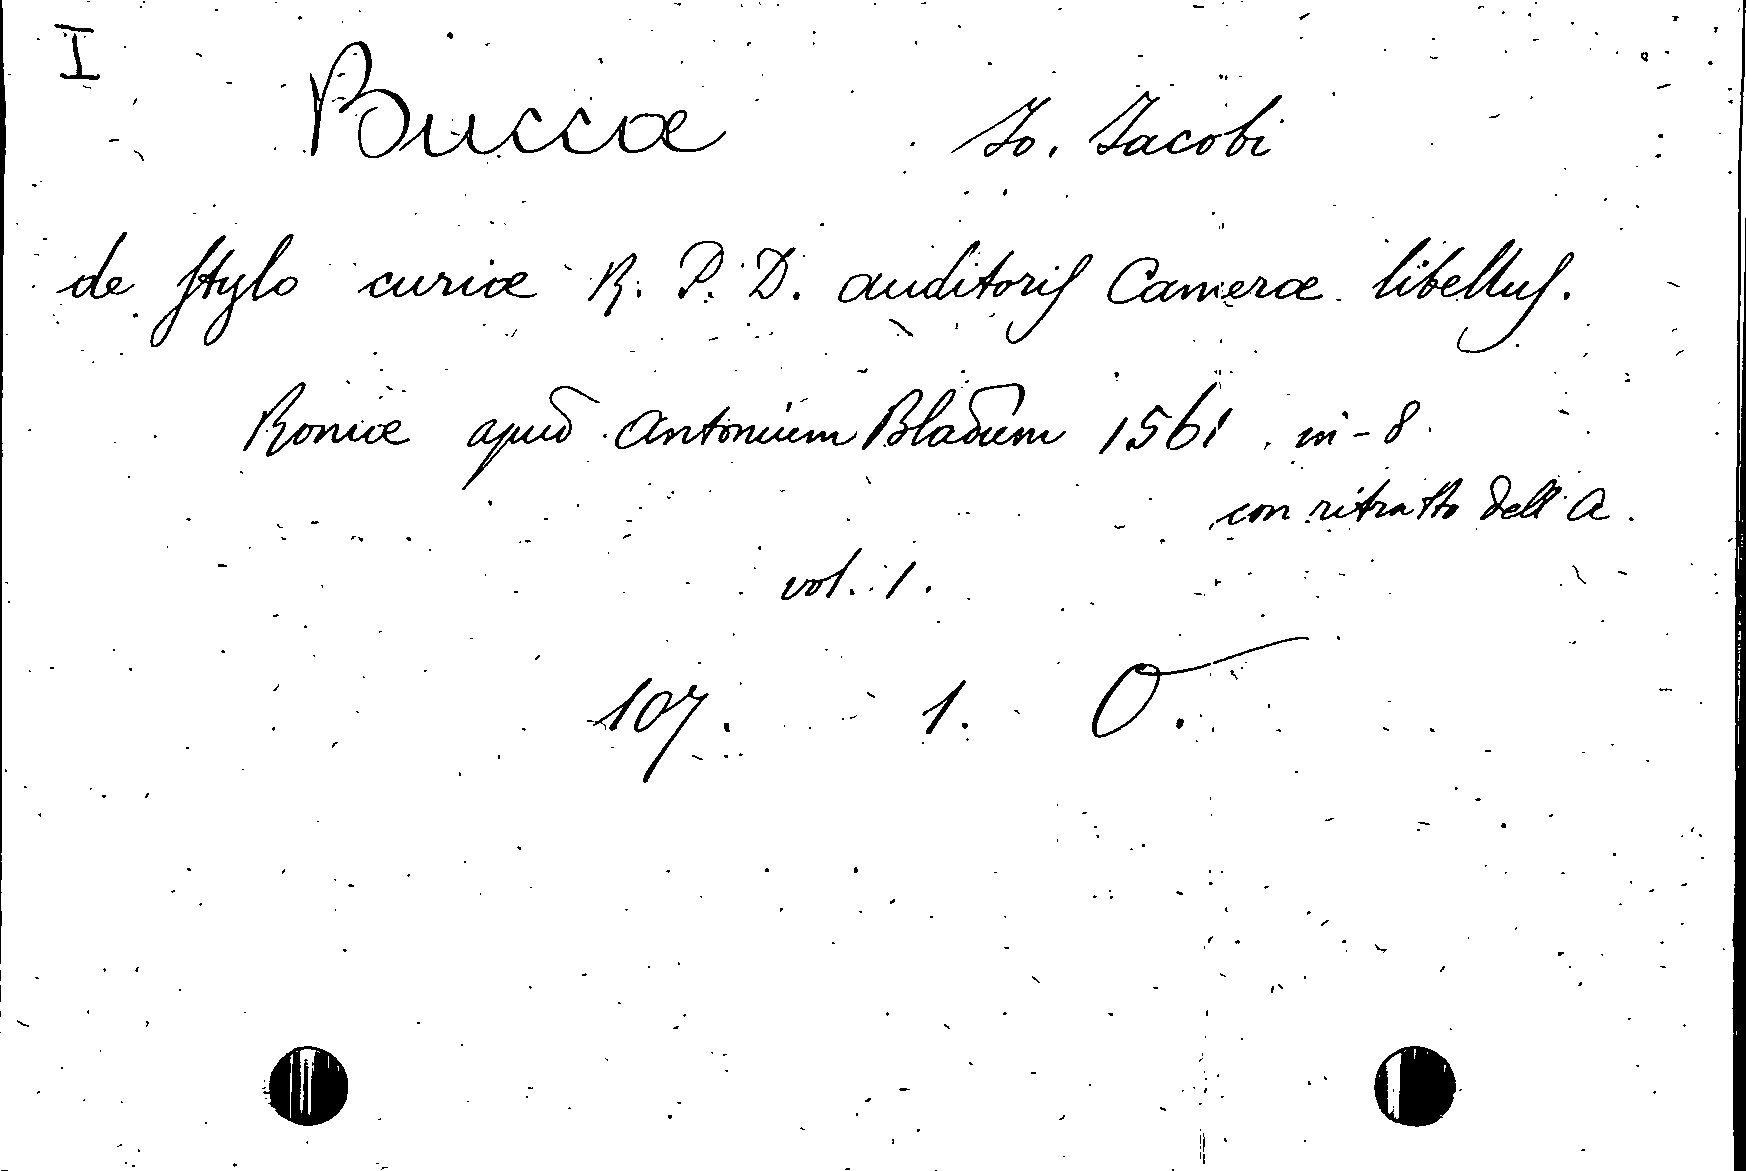 I
Buccæ Io. Iacobi
de stylo curiæ R. P. D. auditoris Cameræ libellus.
Romæ apud Antonium Bladum 1561 in-8
con ritratto dell'A.
vol. 1.
107. 1. O.